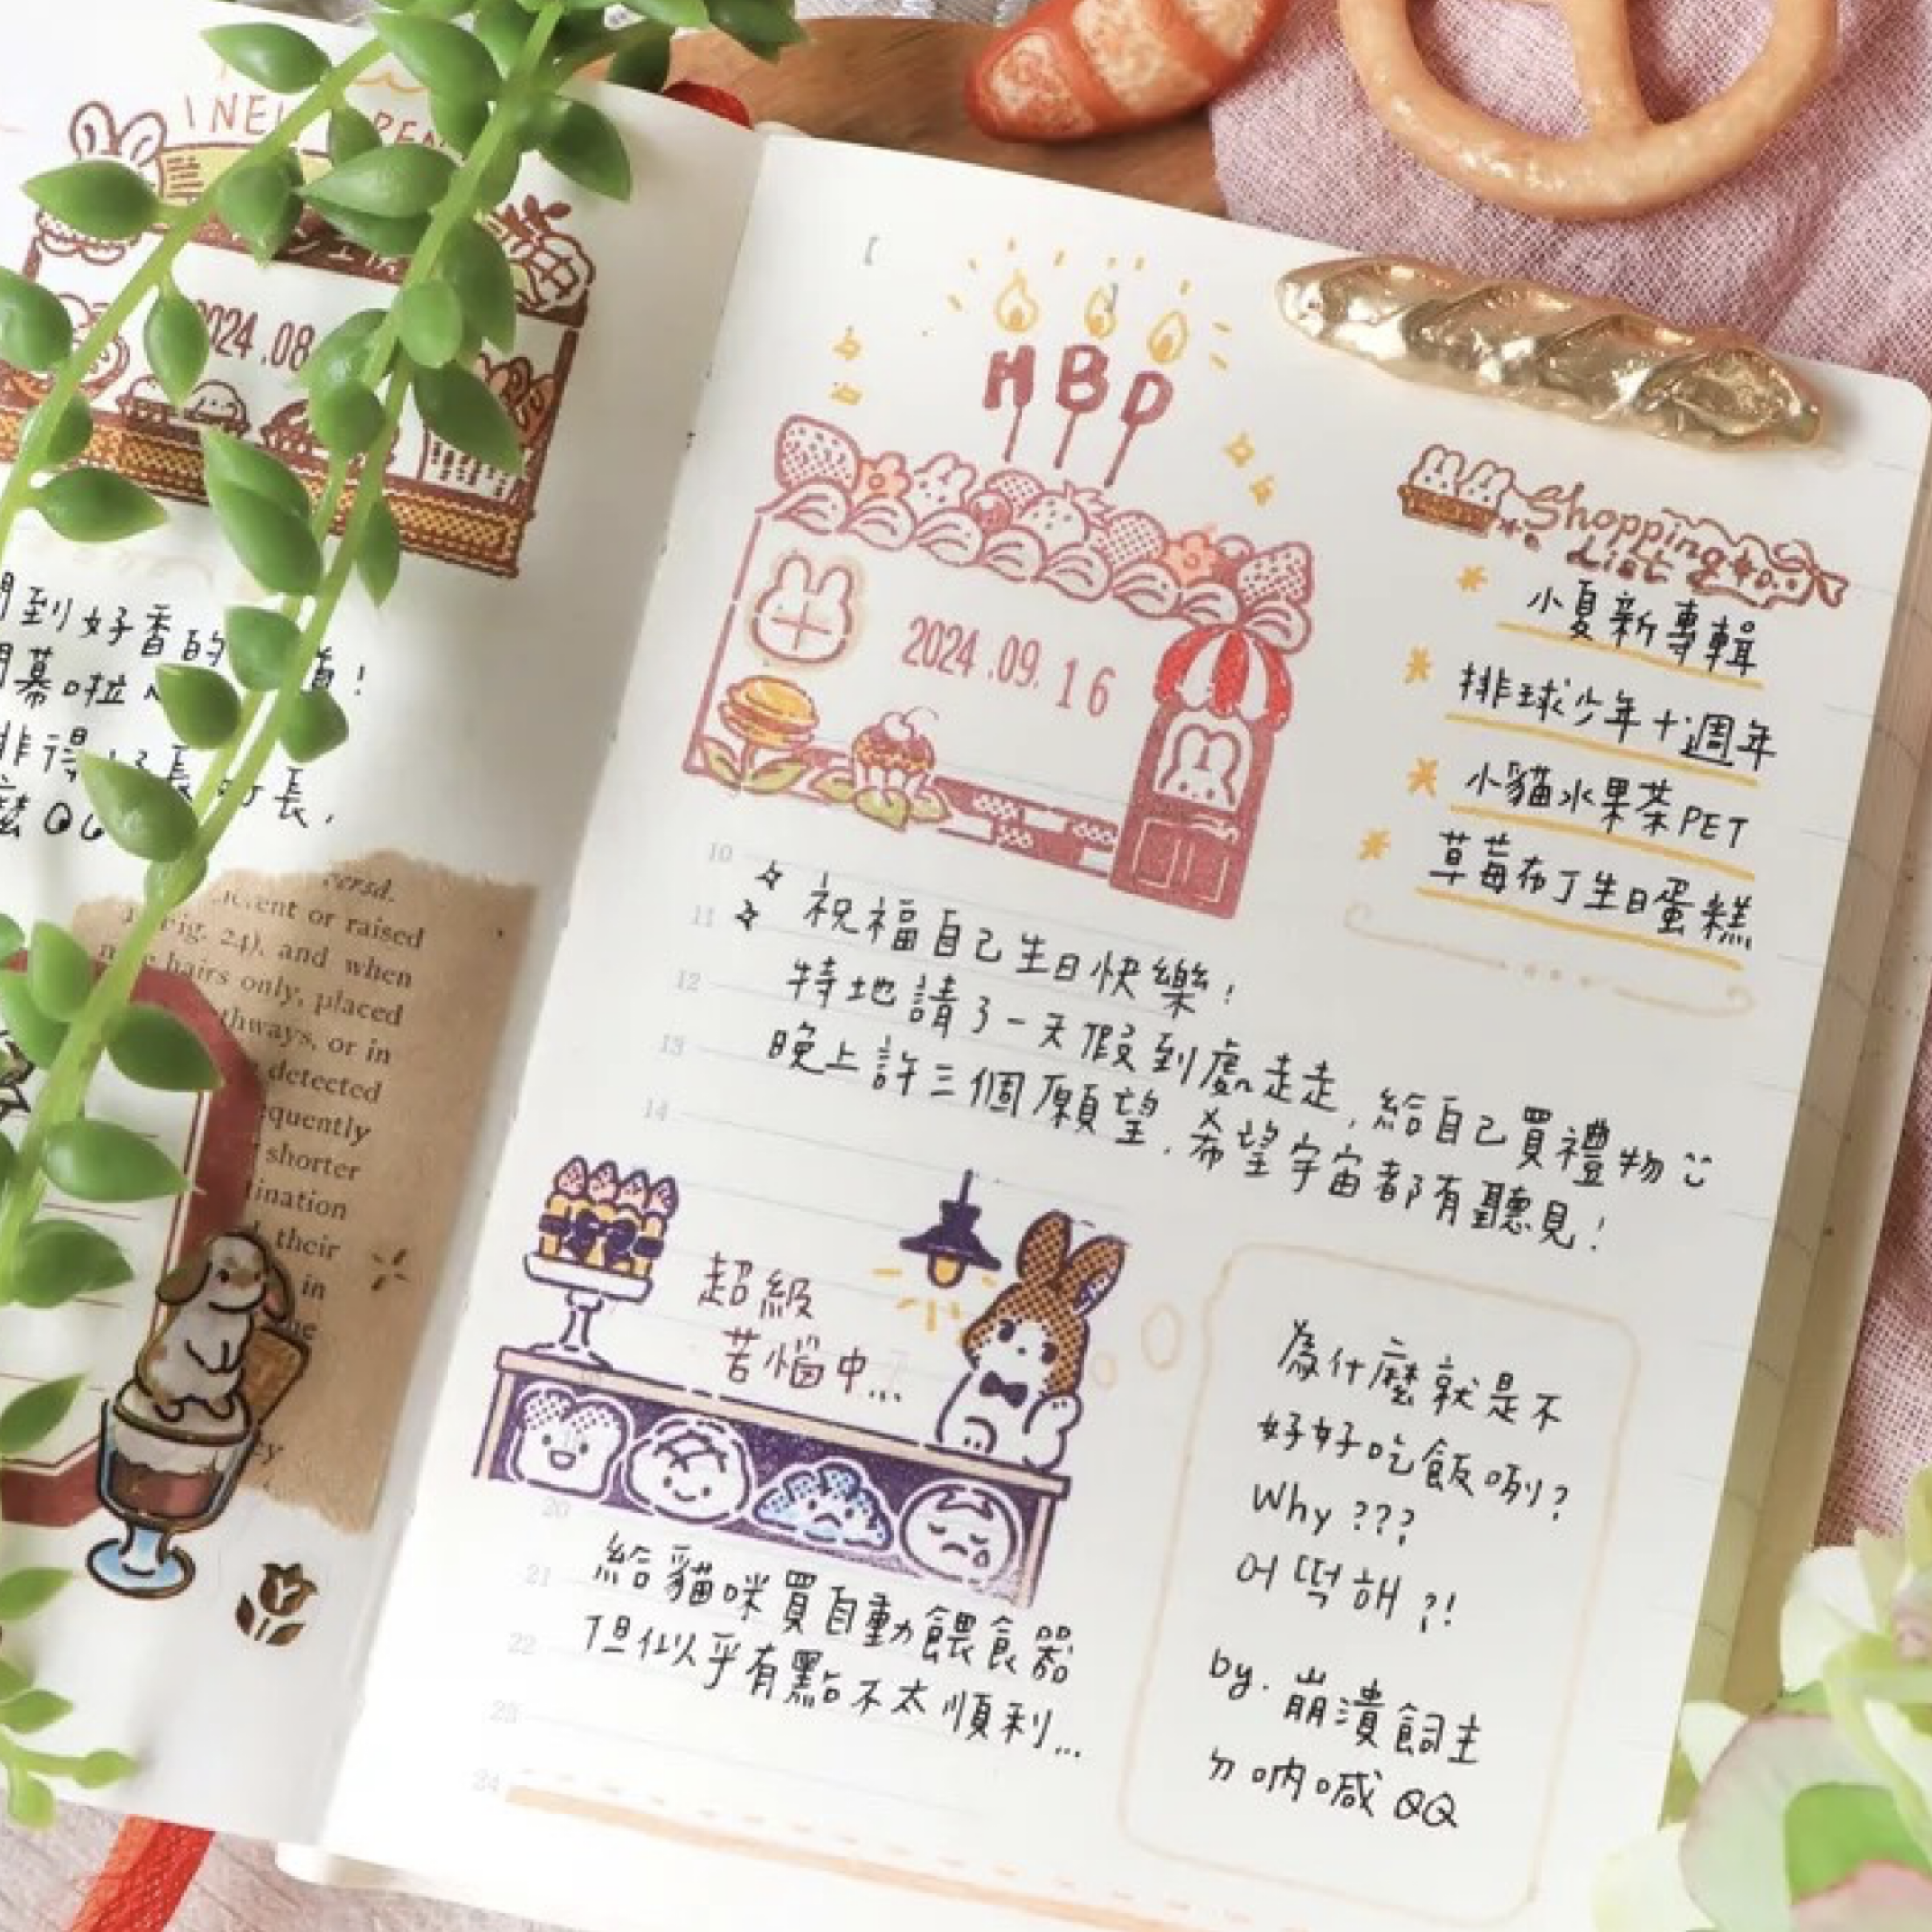 2024.08
到好香的
幕啦
QQ
ersd.
or raised
Fig. 24), and when
hairs only, placed
thways, or in
detected
quently
shorter
ination
their
in
HBD
2024.09.16
Shopping
List
小夏新專輯
排球少年十週年
小貓水果茶PET
草莓布丁生日蛋糕
10
11
12
13
14
祝福自己生日快樂!
特地請了一天假到處走走,給自己買禮物
晚上許三個願望,希望宇宙都有聽見!
超級
苦惱中...
20
21
22
23
24
給貓咪買自動餵食器
但似乎有點不太順利...
為什麼就是不
好好吃飯咧?
Why ???
어떡해?!
by. 崩潰飼主
ㄉ吶喊QQ